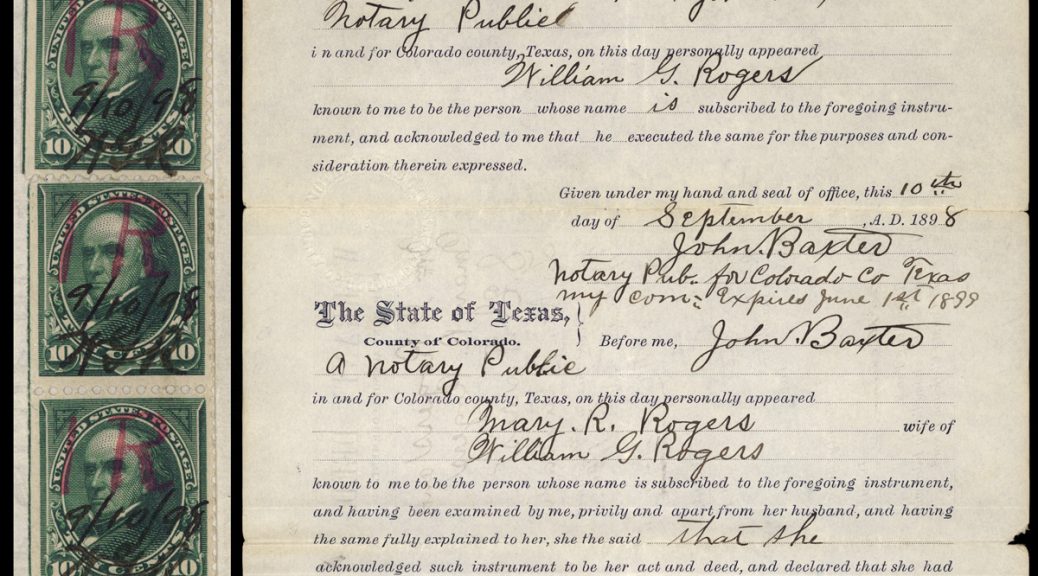 UNITED STATES POSTAGE
I R
9/10/98
10 10
UNITED STATES POSTAGE
I R
9/10/98
10 CENTS 10
UNITED STATES POSTAGE
I R
9/10/98
CENTS
Notary Public
in and for Colorado county, Texas, on this day personally appeared
William G. Rogers
known to me to be the person whose name is subscribed to the foregoing instru-
ment, and acknowledged to me that he executed the same for the purposes and con-
sideration therein expressed.
Given under my hand and seal of office, this 10th
day of September, A. D. 1898
John Baxter
Notary Pub. for Colorado Co Texas
my com: Expires June 1st 1899
The State of Texas,
County of Colorado.
Before me, John Baxter
a Notary Public
in and for Colorado county, Texas, on this day personally appeared
Mary. R. Rogers wife of
William G. Rogers
known to me to be the person whose name is subscribed to the foregoing instrument,
and having been examined by me, privily and apart from her husband, and having
the same fully explained to her, she the said that she
acknowledged such instrument to be her act and deed, and declared that she had